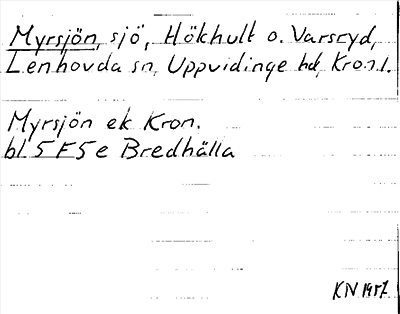 Myrsjön, sjö, Hökhult o. Varsryd,
Lenhovda sn, Uppvidinge hd, Kron.l.
Myrsjön ek Kron.
bl 5 F 5 e Bredhälla
KN 1957